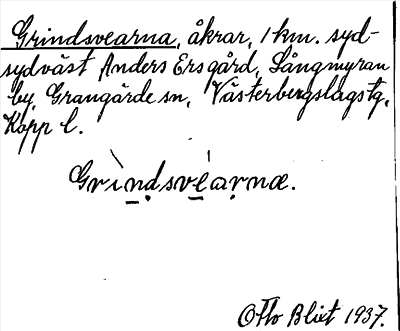 Grindsvearna, åkrar, 1 km. syd-
sydväst Anders Ersgård, Långmyran
by, Grangärde sn, Västerbergslags tg,
Kopp l.
Grìndsvéarnæ.
Otto Blixt 1937.